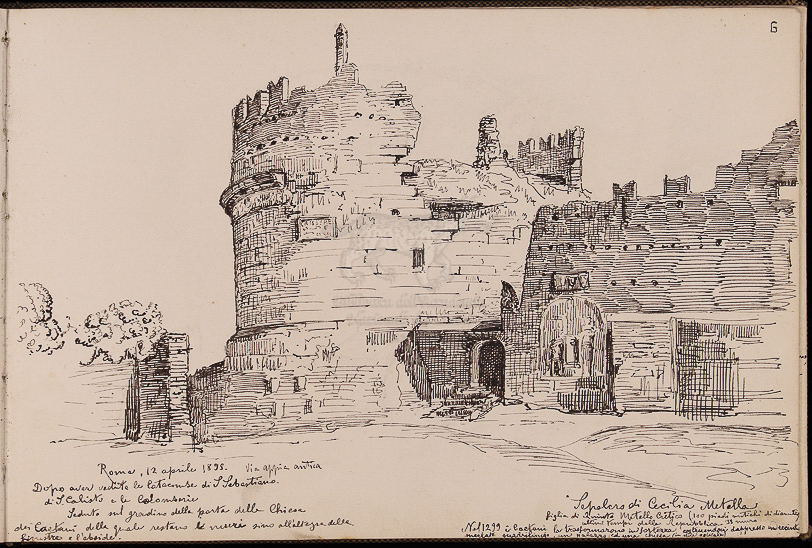 6
Roma, 12 aprile 1895. Via Appia antica
Dopo aver vedute le Catacombe di S. Sebastiano.
di S. Calisto e le Colombarie
Seduto sul gradino della porta della Chiesa
dei Caetani della quale restano le mura sino all'altezza delle
finestre e l'abside.
Sepolcro di Cecilia Metella
figlia di Quinto Metello Cretico (100 piedi antichi di diametro
ultimi tempi della Repubblica
Nel 1299 i Caetani la trasformarono in fortezza
merlata ed una chiesa